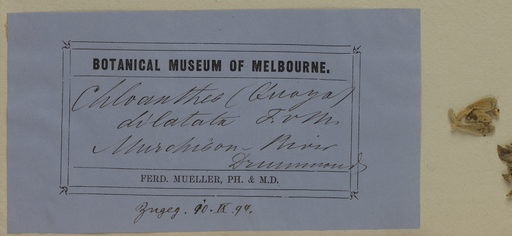 BOTANICAL MUSEUM OF MELBOURNE.
Chloanthes (Quoya)
dilatata F.v.M.
Murchison-River
Drummond
FERD. MUELLER, PH. & M.D.
Zugeg. 10. IX 94.